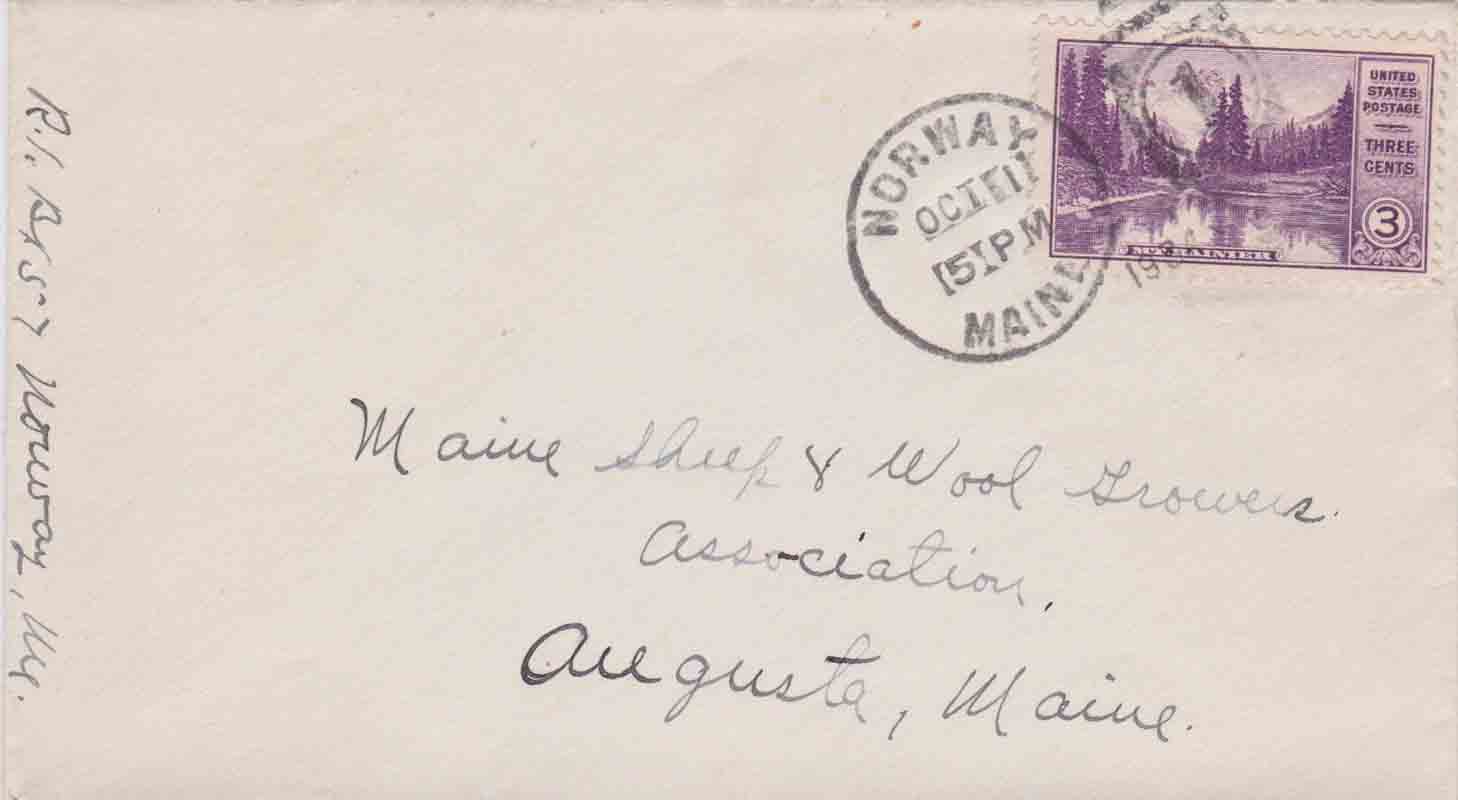 R.1. Bx 57 Norway, Me.
NORWAY
OCT 11
5 PM
MAINE
1934
UNITED
STATES
POSTAGE
THREE
CENTS
3
MT. RAINIER
Maine Sheep & Wool Growers
Association,
Augusta, Maine.